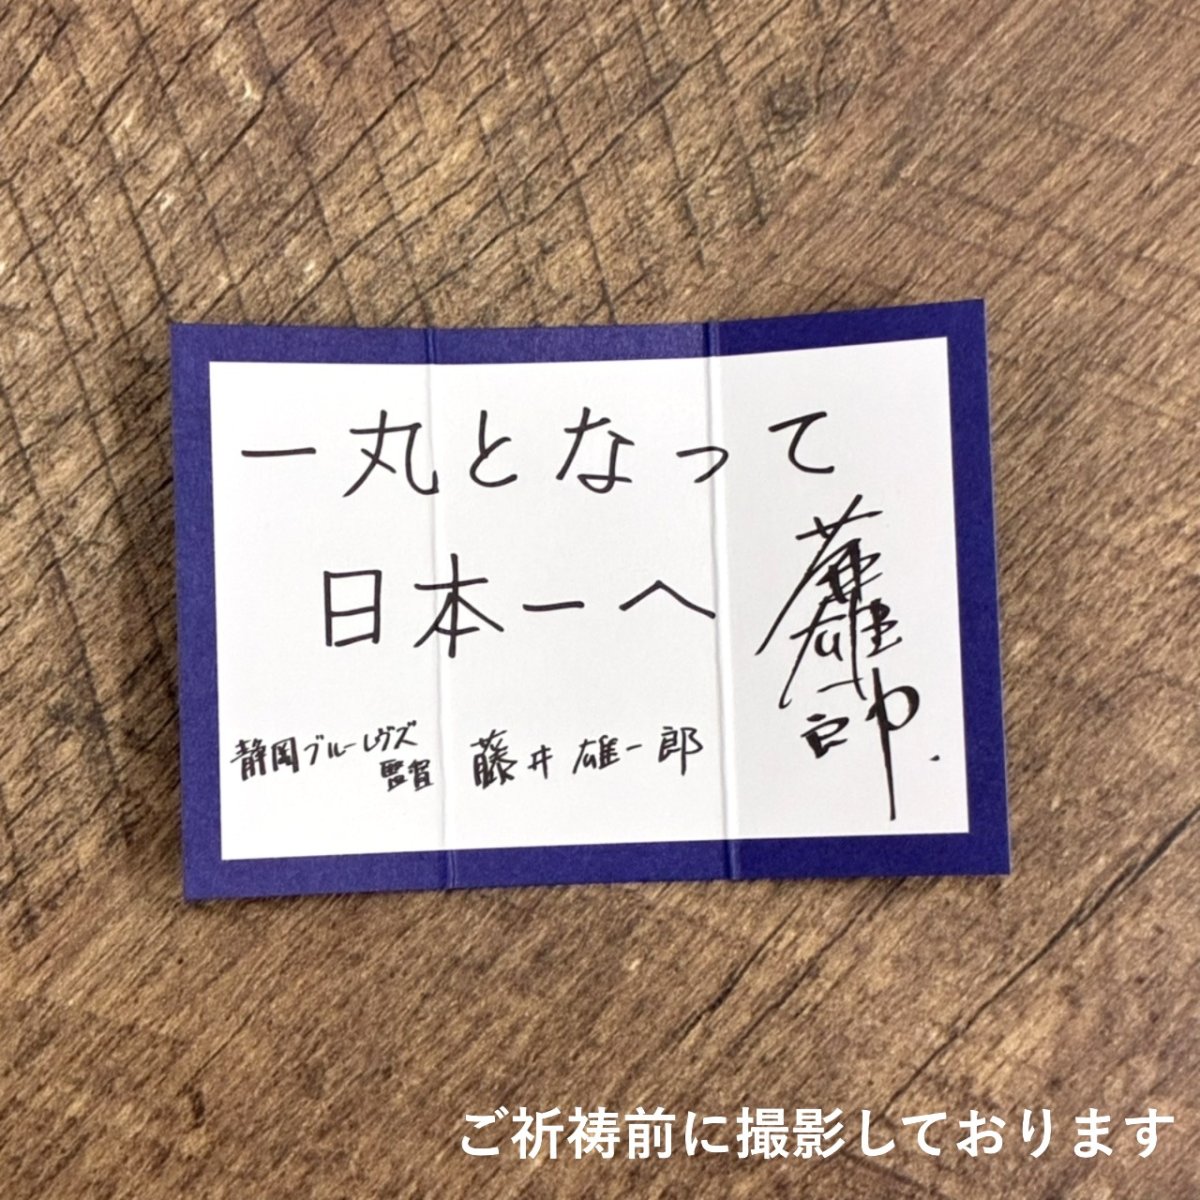 一丸となって
日本一へ
静岡ブルーレヴズ
監督 藤井 雄一郎
ご祈祷前に撮影しております